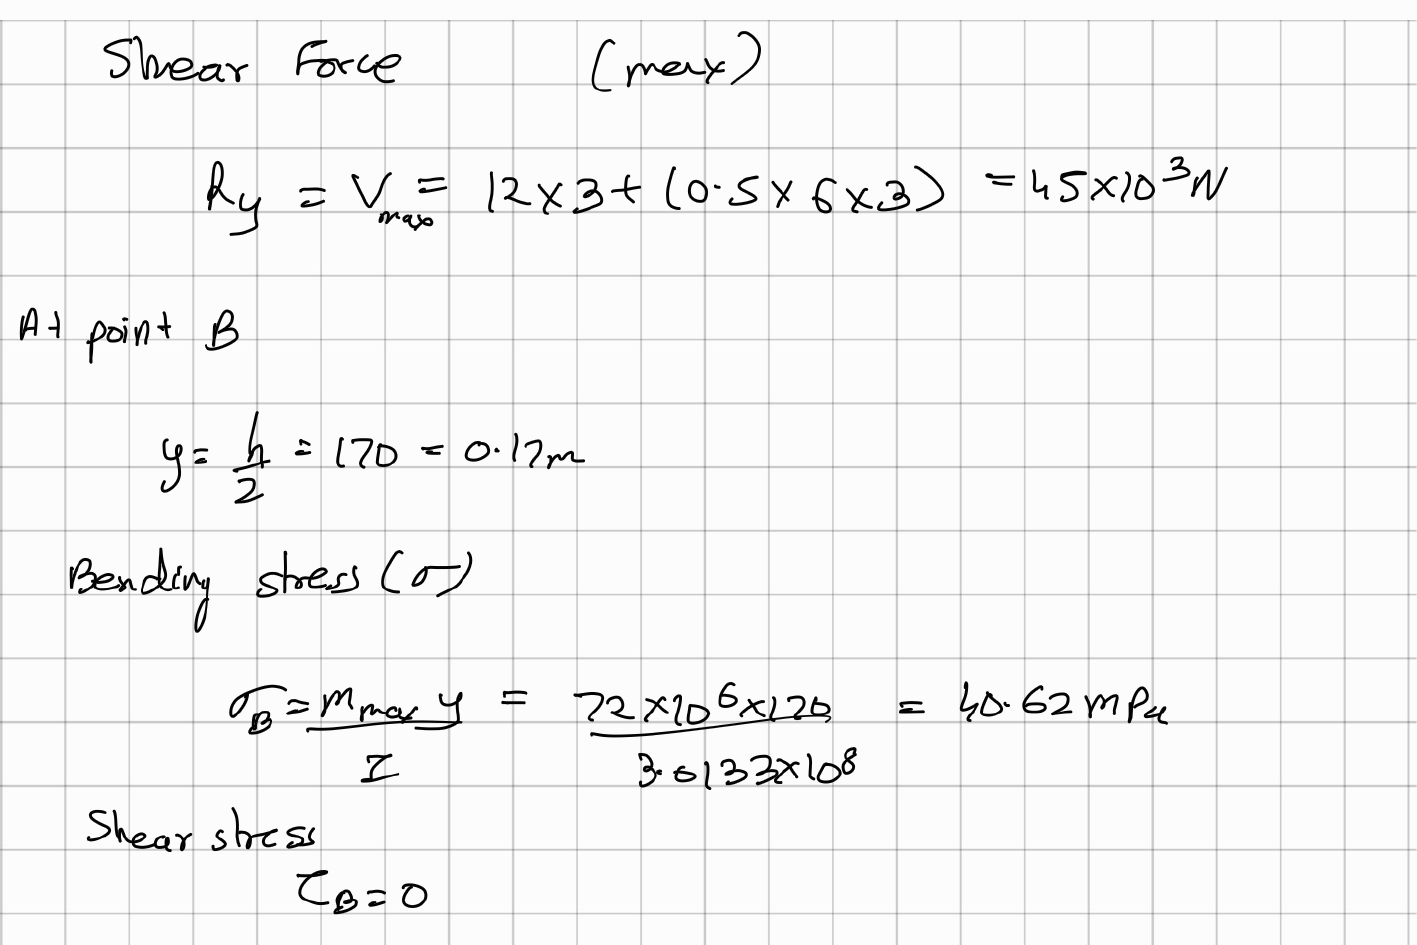 Shear Force (max)
Ry = Vmax = 12×3+(0.5×6×3) = 45×10³N
At point B
y = h/2 = 170 = 0.17m
Bending stress (σ)
σB = Mmax y / I = 72×10⁶×170 / 3.0133×10⁸ = 40.62 MPa
Shear stress
τB = 0